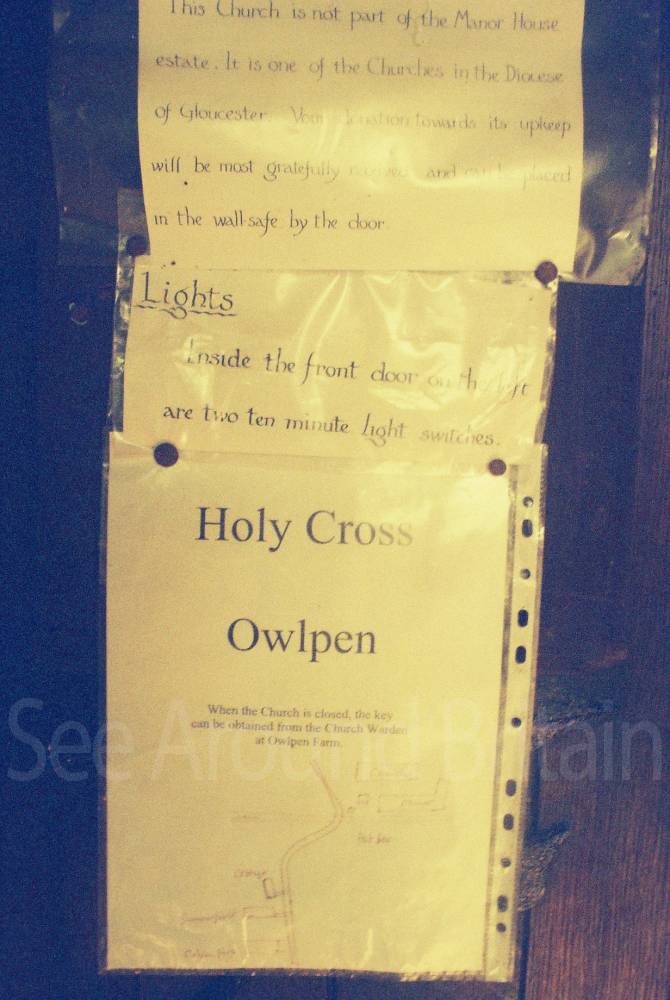 This Church is not part of the Manor House
estate. It is one of the Churches in the Diocese
of Gloucester. Your donation towards its upkeep
will be most gratefully received and can be placed
in the wall-safe by the door.
Lights
Inside the front door on the left
are two ten minute light switches.
Holy Cross
Owlpen
When the Church is closed, the key
can be obtained from the Church Warden
at Owlpen Farm.
See Around Britain
Church
Cottage